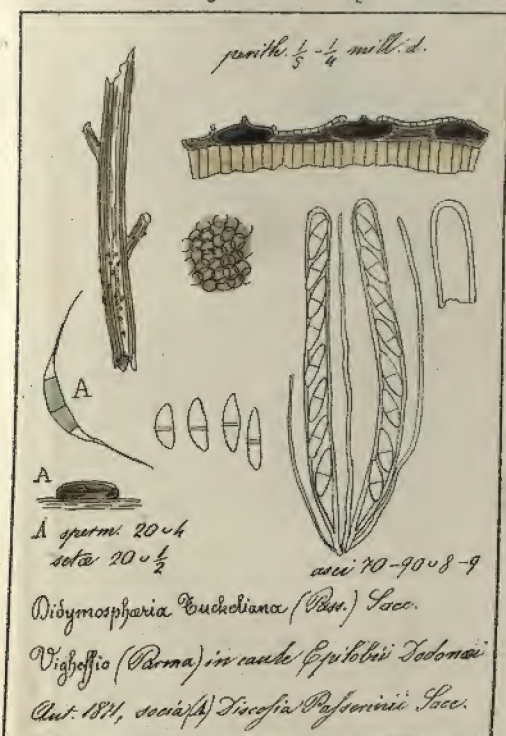 perith. 1/5 - 1/4 mill. d.
A
A
A sperm. 20 ᴗ 4
setæ 20 ᴗ 1/2
asci 70-90 ᴗ 8-9
Didymosphæria Fuckeliana (Pass.) Sacc.
Vigheffio (Parma) in caule Epilobii Dodonæi
Aut. 1871, socia (A) Discosia Passerinii Sacc.